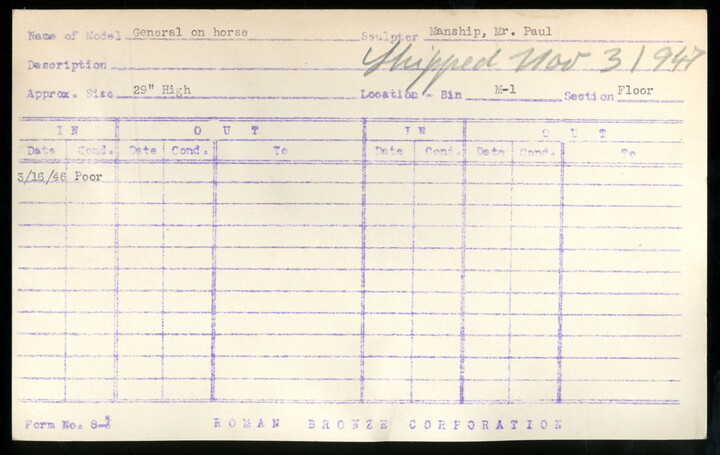 Name of Model General on horse Sculptor Manship, Mr. Paul
Description Shipped Nov 3 1947
Approx. Size 29" High Location - Bin M-1 Section Floor
I N O U T I N O U T
Date Cond. Date Cond. To Date Cond. Date Cond. To
3/16/46 Poor
Form No. 8-3 ROMAN BRONZE CORPORATION